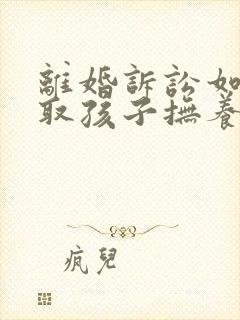 離婚訴訟如
取孩子撫養
瘋兒